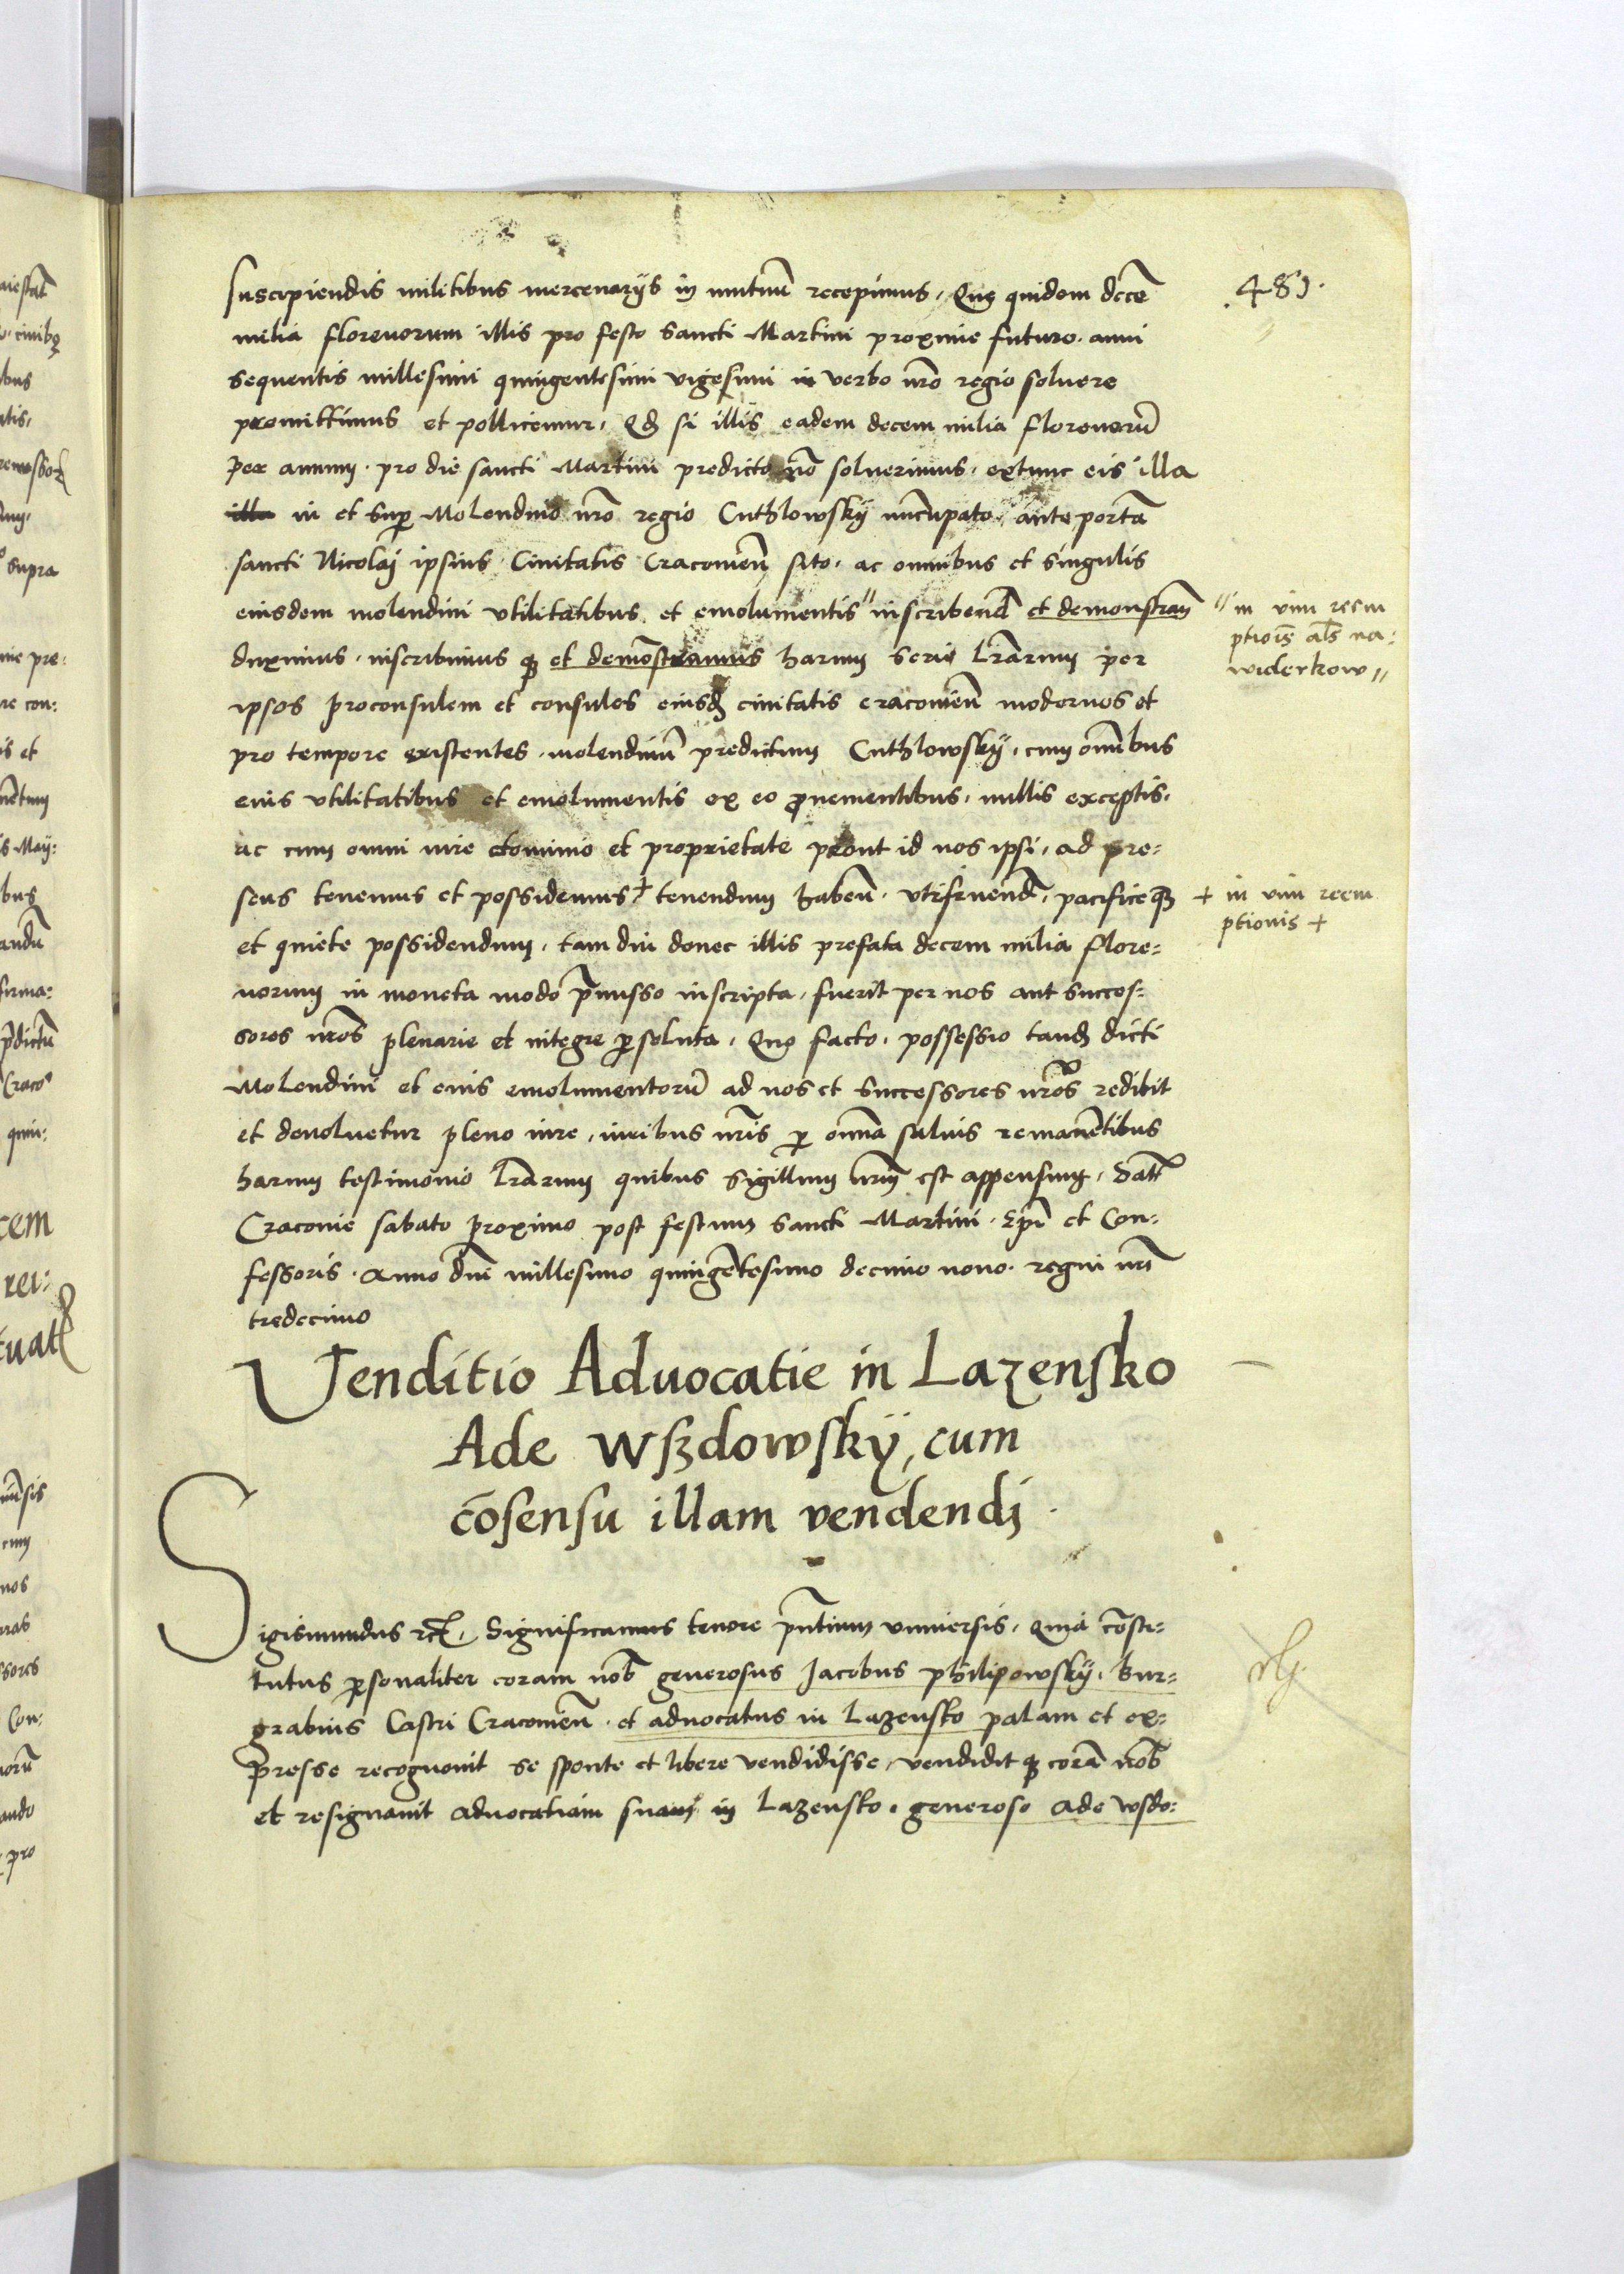 .481.
suscipiendis militibus mercenarijs in mutuū recepimus, Que quidem decē
milia florenorum illis pro festo Sancti Martini proxime futuro. anni
sequentis millesimi quingentesimi vigesimi in verbo nr̄o regio soluere
promittimus et pollicemur, Qd si illis eadem decem milia florenorū
per annum. pro die sancti Martini predicto nō soluerimus. extunc eis illa
illa in et sup̄ Molendino nr̄o regio Cuthlowskÿ nūcupato. ante portā
sancti Nicolaj ipsius Ciuitatis Cracouieñ sito. ac omnibus et singulis
eiusdem molendini vtilitatibus et emolumentis " inscribend̄ et demonstrañ
duximus. inscribimusqȝ et demōstramus harum serie l̄rarum per
ipsos proconsulem et consules eiusd̄ ciuitatis cracouieñ modernos et
pro tempore existentes. molendinū predictum Cuthlowskÿ, cum om̄ibus
eius vtilitatibus et emolumentis ex eo ꝓuenientibus, nullis exceptis,
ac cum omni iure dominio et proprietate prout id nos ipsi, ad pre-
sens tenemus et possidemus + tenendum habeñ. vtifruend̄, pacificeqȝ
et quiete possidendum, tam diu donec illis prefata decem milia flore-
norum in moneta modo p̄misso inscripta, fuerit per nos aut succes-
sores nr̄os plenarie et integre ꝑsoluta, Quo facto, possessio tand̄ dicti
Molendini et eius emolumentorū ad nos et successores nr̄os redibit
et deuoluetur pleno iure, iuribus nr̄is ꝑ omnia saluis remanētibus
harum testimonio l̄rarum quibus sigillum nr̄um est appensum. Dat̄
Cracouie sabato proximo post festum sancti Martini. Ep̄i et Con-
fessoris. Anno dn̄i millesimo quingētesimo decimo nono. regni nr̄i
tredecimo
" in vim reem
ptiōis al̄s na
widerkow "
+ in vim reem
ptionis +
Venditio Aduocatie in Lazensko
Ade Wszdowskÿ, cum
cōsensu illam vendendi.
Sigismundus etc̄. Significamus tenore p̄ntium vniuersis, Quia cōsti-
tutus ꝑsonaliter coram nob̄ generosus Jacobus philipowskÿ. Bur-
grabius Castri Cracouieñ. et aduocatus in Lazensko palam et ex-
presse recognouit se sponte et libere vendidisse, vendiditqȝ corā nob̄
et resignauit aduocatiam suam in Lazensko. generoso Ade vsdo-